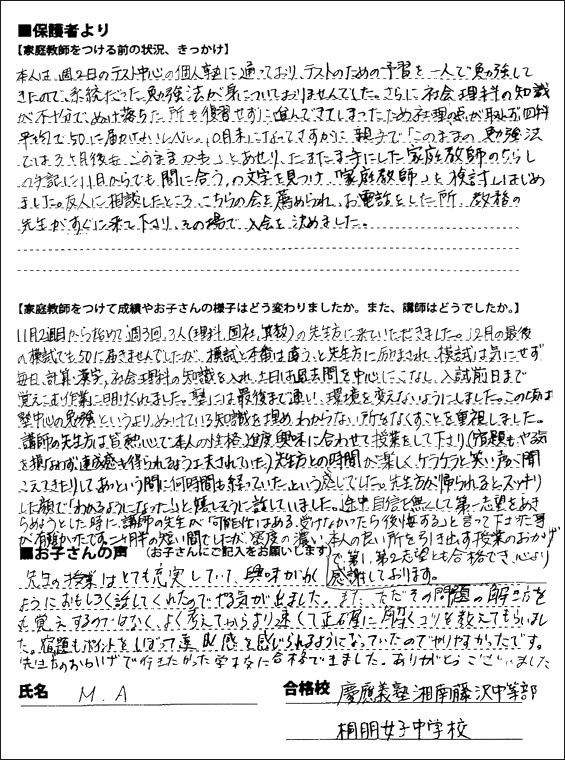 ■保護者より
【家庭教師をつける前の状況、きっかけ】
本人は週2日のテスト中心の個人塾に通っており、テストのための予習を一人で勉強して
きたので、系統だった勉強法が身についておりませんでした。さらに社会、理科の知識
が不十分でぬけ落ちた所も復習せずに進んできてしまったため社理の点が取れず四科
平均で50に届かないレベル。10月末になってさすがに親子で「このままの勉強法
では3ヶ月後も、このままかも」とあせり、たまたま手にした家庭教師のちらし
の手記に11月からでも間に合う、の文字を見つけ「家庭教師」を検討しはじめ
ました。友人に相談したところ、こちらの会を薦められ、お電話をした所、教務の
先生がすぐに来て下さり、その場で入会を決めました。
【家庭教師をつけて成績やお子さんの様子はどう変わりましたか。また、講師はどうでしたか。】
11月2週目から始めて週3回、3人(理科、国社、算数)の先生方に来ていただきました。12月の最後
の模試でも50に届きませんでしたが、模試と本番は違う、と先生方に励まされ、模試は気にせず
毎日、計算・漢字、社会理科の知識を入れ、土日は過去問を中心にこなし、入試前日まで
覚えこむ作業に明けくれました。塾には最後まで通い、環境を変えないようにしました。この頃は
塾中心の勉強というより、ぬけている知識を埋め、わからない所をなくすことを重視しました。
講師の先生方は皆熱心で本人の性格、進度、興味に合わせて授業をして下さり(宿題もやる気
を損なわず達成感を得られるよう工夫されていた)先生方との時間が楽しく、ケラケラと笑い声が聞
こえてきたりしてあっという間に何時間も経っていたという感じでした。先生方が帰られるとスッキリ
した顔で「わかるようになった」と嬉しそうに話していました。途中自信を無くして第一志望をあき
らめようとした時に講師の先生が「可能性はある、受けなかったら後悔する」と言って下さった事
が有難かったです。二ヶ月半の短い間でしたが、密度の濃い、本人の良い所を引き出す授業のおかげ
で第1、第2志望とも合格でき、心より
感謝しております。
■お子さんの声 (お子さんにご記入をお願いします)
先生の授業はとても充実していて興味がわく
ようにおもしろく話してくれたのでやる気が出ました。また、ただその問題の解き方を
覚えるのではなく、よく考えてからより速くて正確に解くコツを教えてもらいまし
た。宿題もポイントをしぼって達成感を感じられるようになっていたのでやりやすかったです。
先生方のおかげで行きたかった学校に合格できました。ありがとうございました
氏名 M.A
合格校 慶應義塾湘南藤沢中等部
桐朋女子中学校